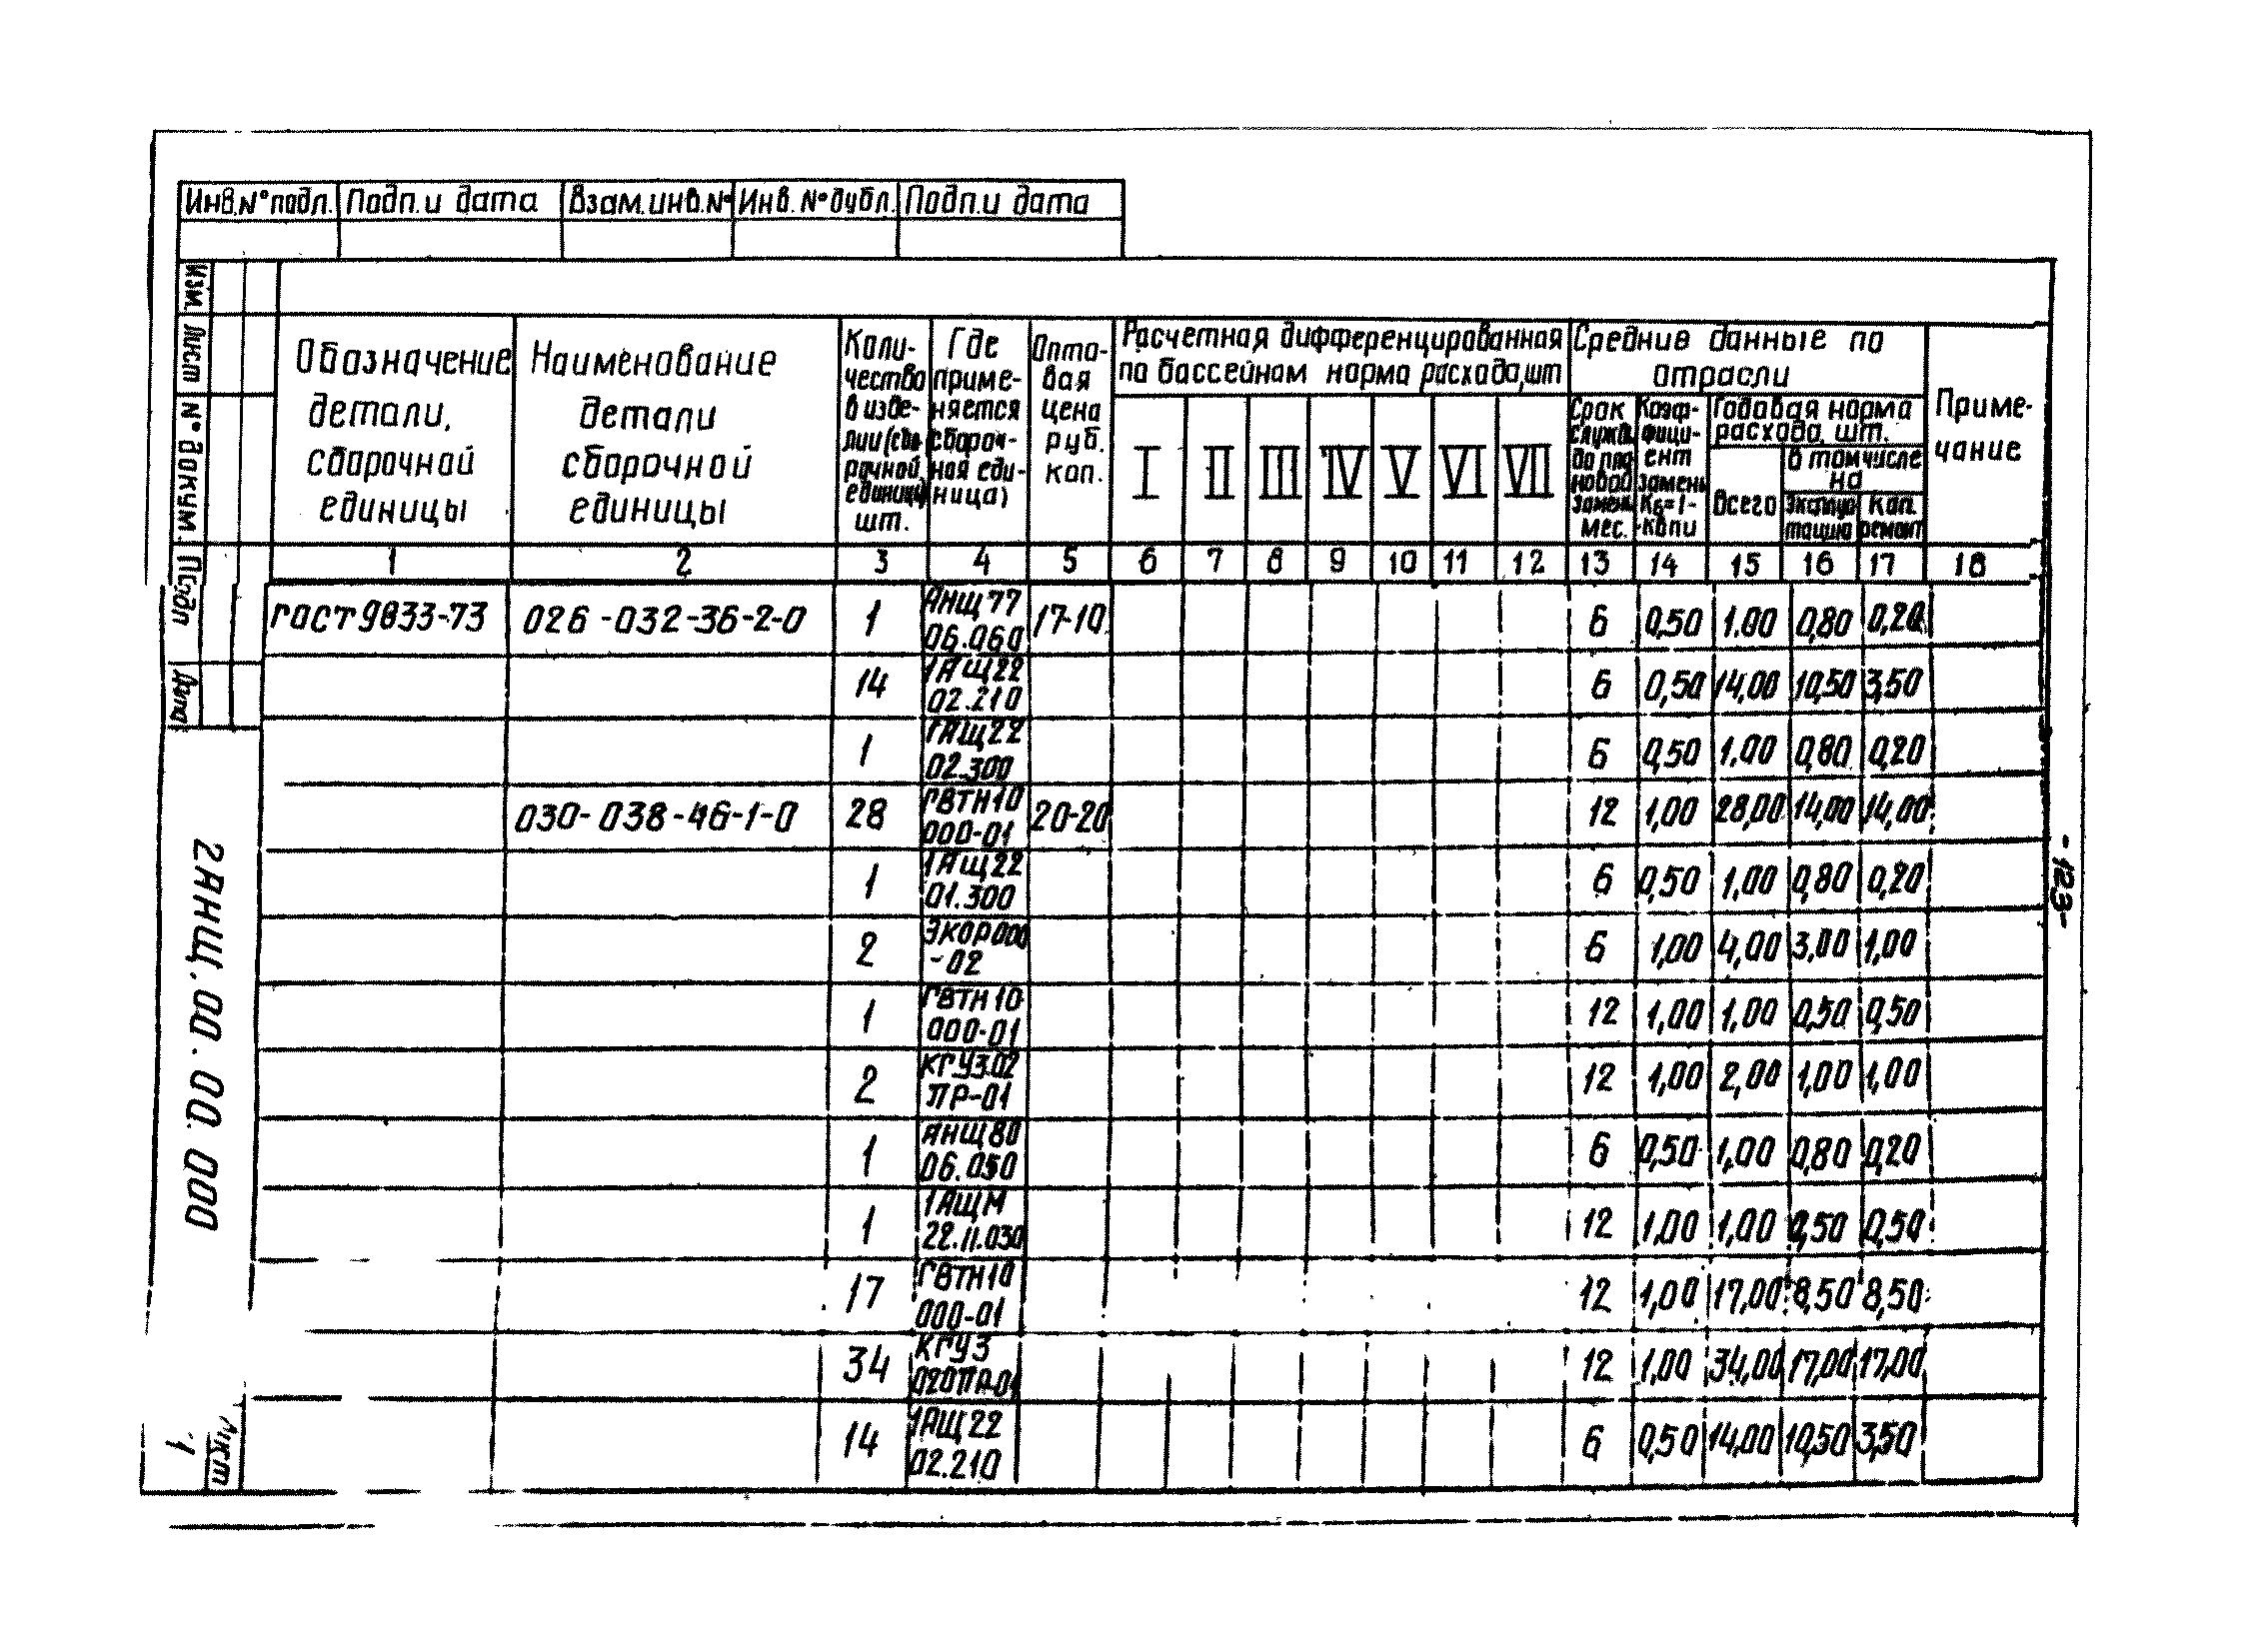 Инв.№ подл. Подп.и дата Взам.инв.№ Инв.№ дубл. Подп.и дата
Изм. Лист № докум. Подп Дата
Обозначение детали, сборочной единицы
Наименование детали сборочной единицы
Коли-
чество
в изде-
лии (сбо-
рочной
единице)
шт.
Где
приме-
няется
(сбороч-
ная еди-
ница)
Опто-
вая
цена
руб.
коп.
Расчетная дифференцированная
по бассейнам норма расхода, шт
I II III IV V VI VII
Средние данные по
отрасли
Срок
службы
до пла-
новой
замены
мес.
Коэф-
фици-
ент
замены
Кв=1-
-Копи
Годовая норма
расхода, шт.
Всего
в том числе
на
Эксплуа
тацию
Кап.
ремонт
Приме-
чание
1 2 3 4 5 6 7 8 9 10 11 12 13 14 15 16 17 18
гост 9833-73 026-032-36-2-0 1 АНЩ77 06.060 17-10 6 0,50 1.00 0,80 0,20
14 1АЩ22 02.210 6 0,50 14,00 10,50 3,50
1 1АЩ22 02.300 6 0,50 1,00 0,80 0,20
030-038-46-1-0 28 ГВТН10 000-01 20-20 12 1,00 28,00 14,00 14,00
1 1АЩ22 01.300 6 0,50 1,00 0,80 0,20
2 ЭКОР000 -02 6 1,00 4,00 3,00 1,00
1 ГВТН10 000-01 12 1,00 1,00 0,50 0,50
2 КГУ3.02 ПР-01 12 1,00 2,00 1,00 1,00
1 АНЩ80 06.050 6 0,50 1,00 0,80 0,20
1 1АЩМ 22.11.030 12 1,00 1,00 0,50 0,50
17 ГВТН10 000-01 12 1,00 17,00 8,50 8,50
34 КГУ3 020ПР-01 12 1,00 34,00 17,00 17,00
14 1АЩ22 02.210 6 0,50 14,00 10,50 3,50
2АНЩ.00.00.000
Лист
1
-123-